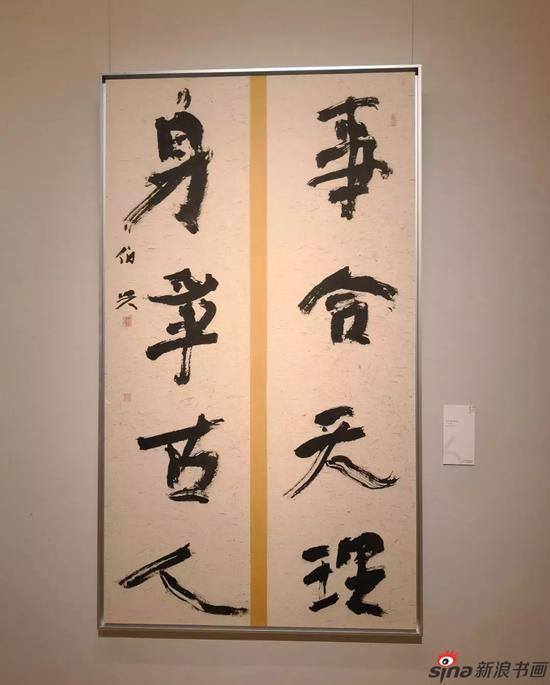 事合天理
身 古人
伯
sina 新浪书画